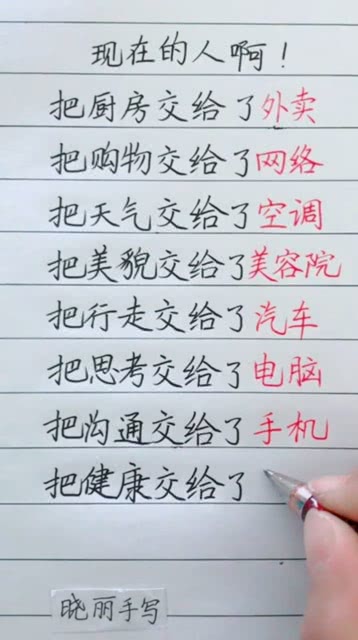 现在的人啊!
把厨房交给了外卖
把购物交给了网络
把天气交给了空调
把美貌交给了美容院
把行走交给了汽车
把思考交给了电脑
把沟通交给了手机
把健康交给了
晓丽手写